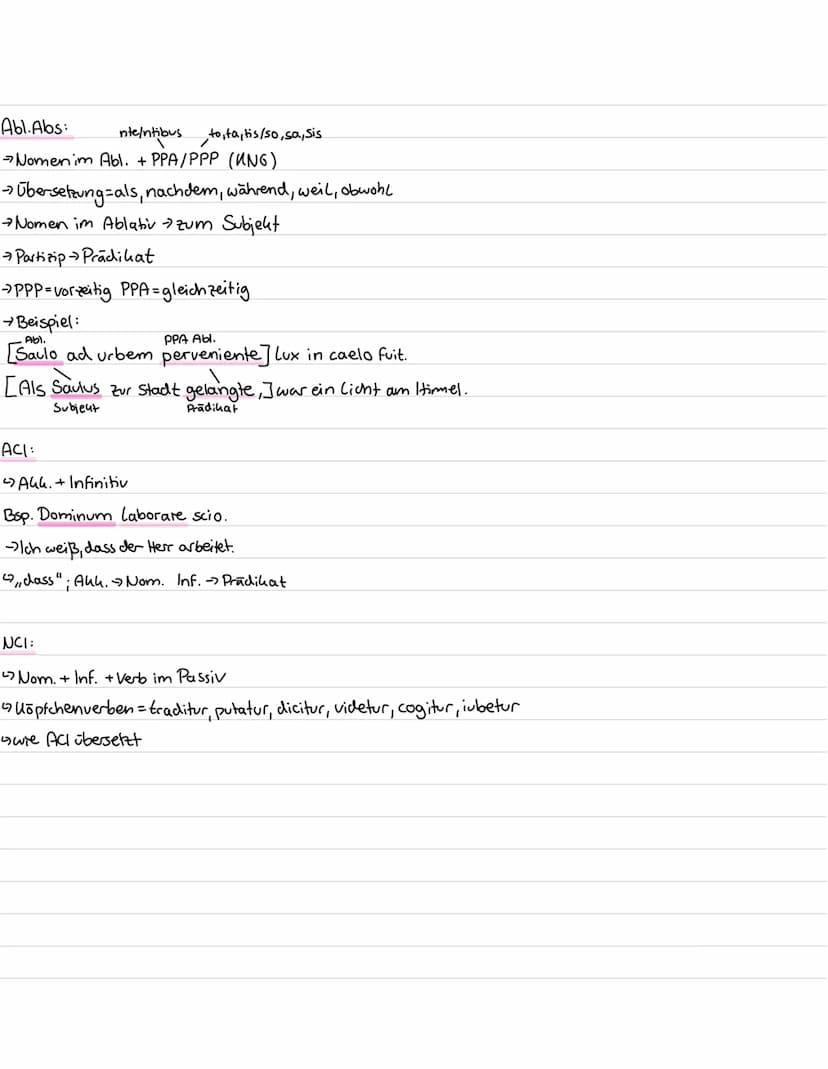 Abl.Abs:
nte/ntibus to,ta,tis/so,sa,sis
→Nomen im Abl. + PPA/PPP (KNG)
→Übersetzung=als, nachdem, während, weil, obwohl
→Nomen im Ablativ → zum Subjekt
→Partizip→Prädikat
→PPP=vorzeitig PPA=gleichzeitig
→Beispiel:
Abl. PPA Abl.
[Saulo ad urbem perveniente] Lux in caelo fuit.
[Als Saulus zur Stadt gelangte,] war ein Licht am Himmel.
Subjekt Prädikat
ACI:
↪Akk. + Infinitiv
Bsp. Dominum laborare scio.
→Ich weiß, dass der Herr arbeitet.
↪„dass“; Akk.→Nom. Inf.→Prädikat
NCI:
↪Nom. + Inf. + Verb im Passiv
↪Köpfchenverben = traditur, putatur, dicitur, videtur, cogitur, iubetur
↪wie ACI übersetzt